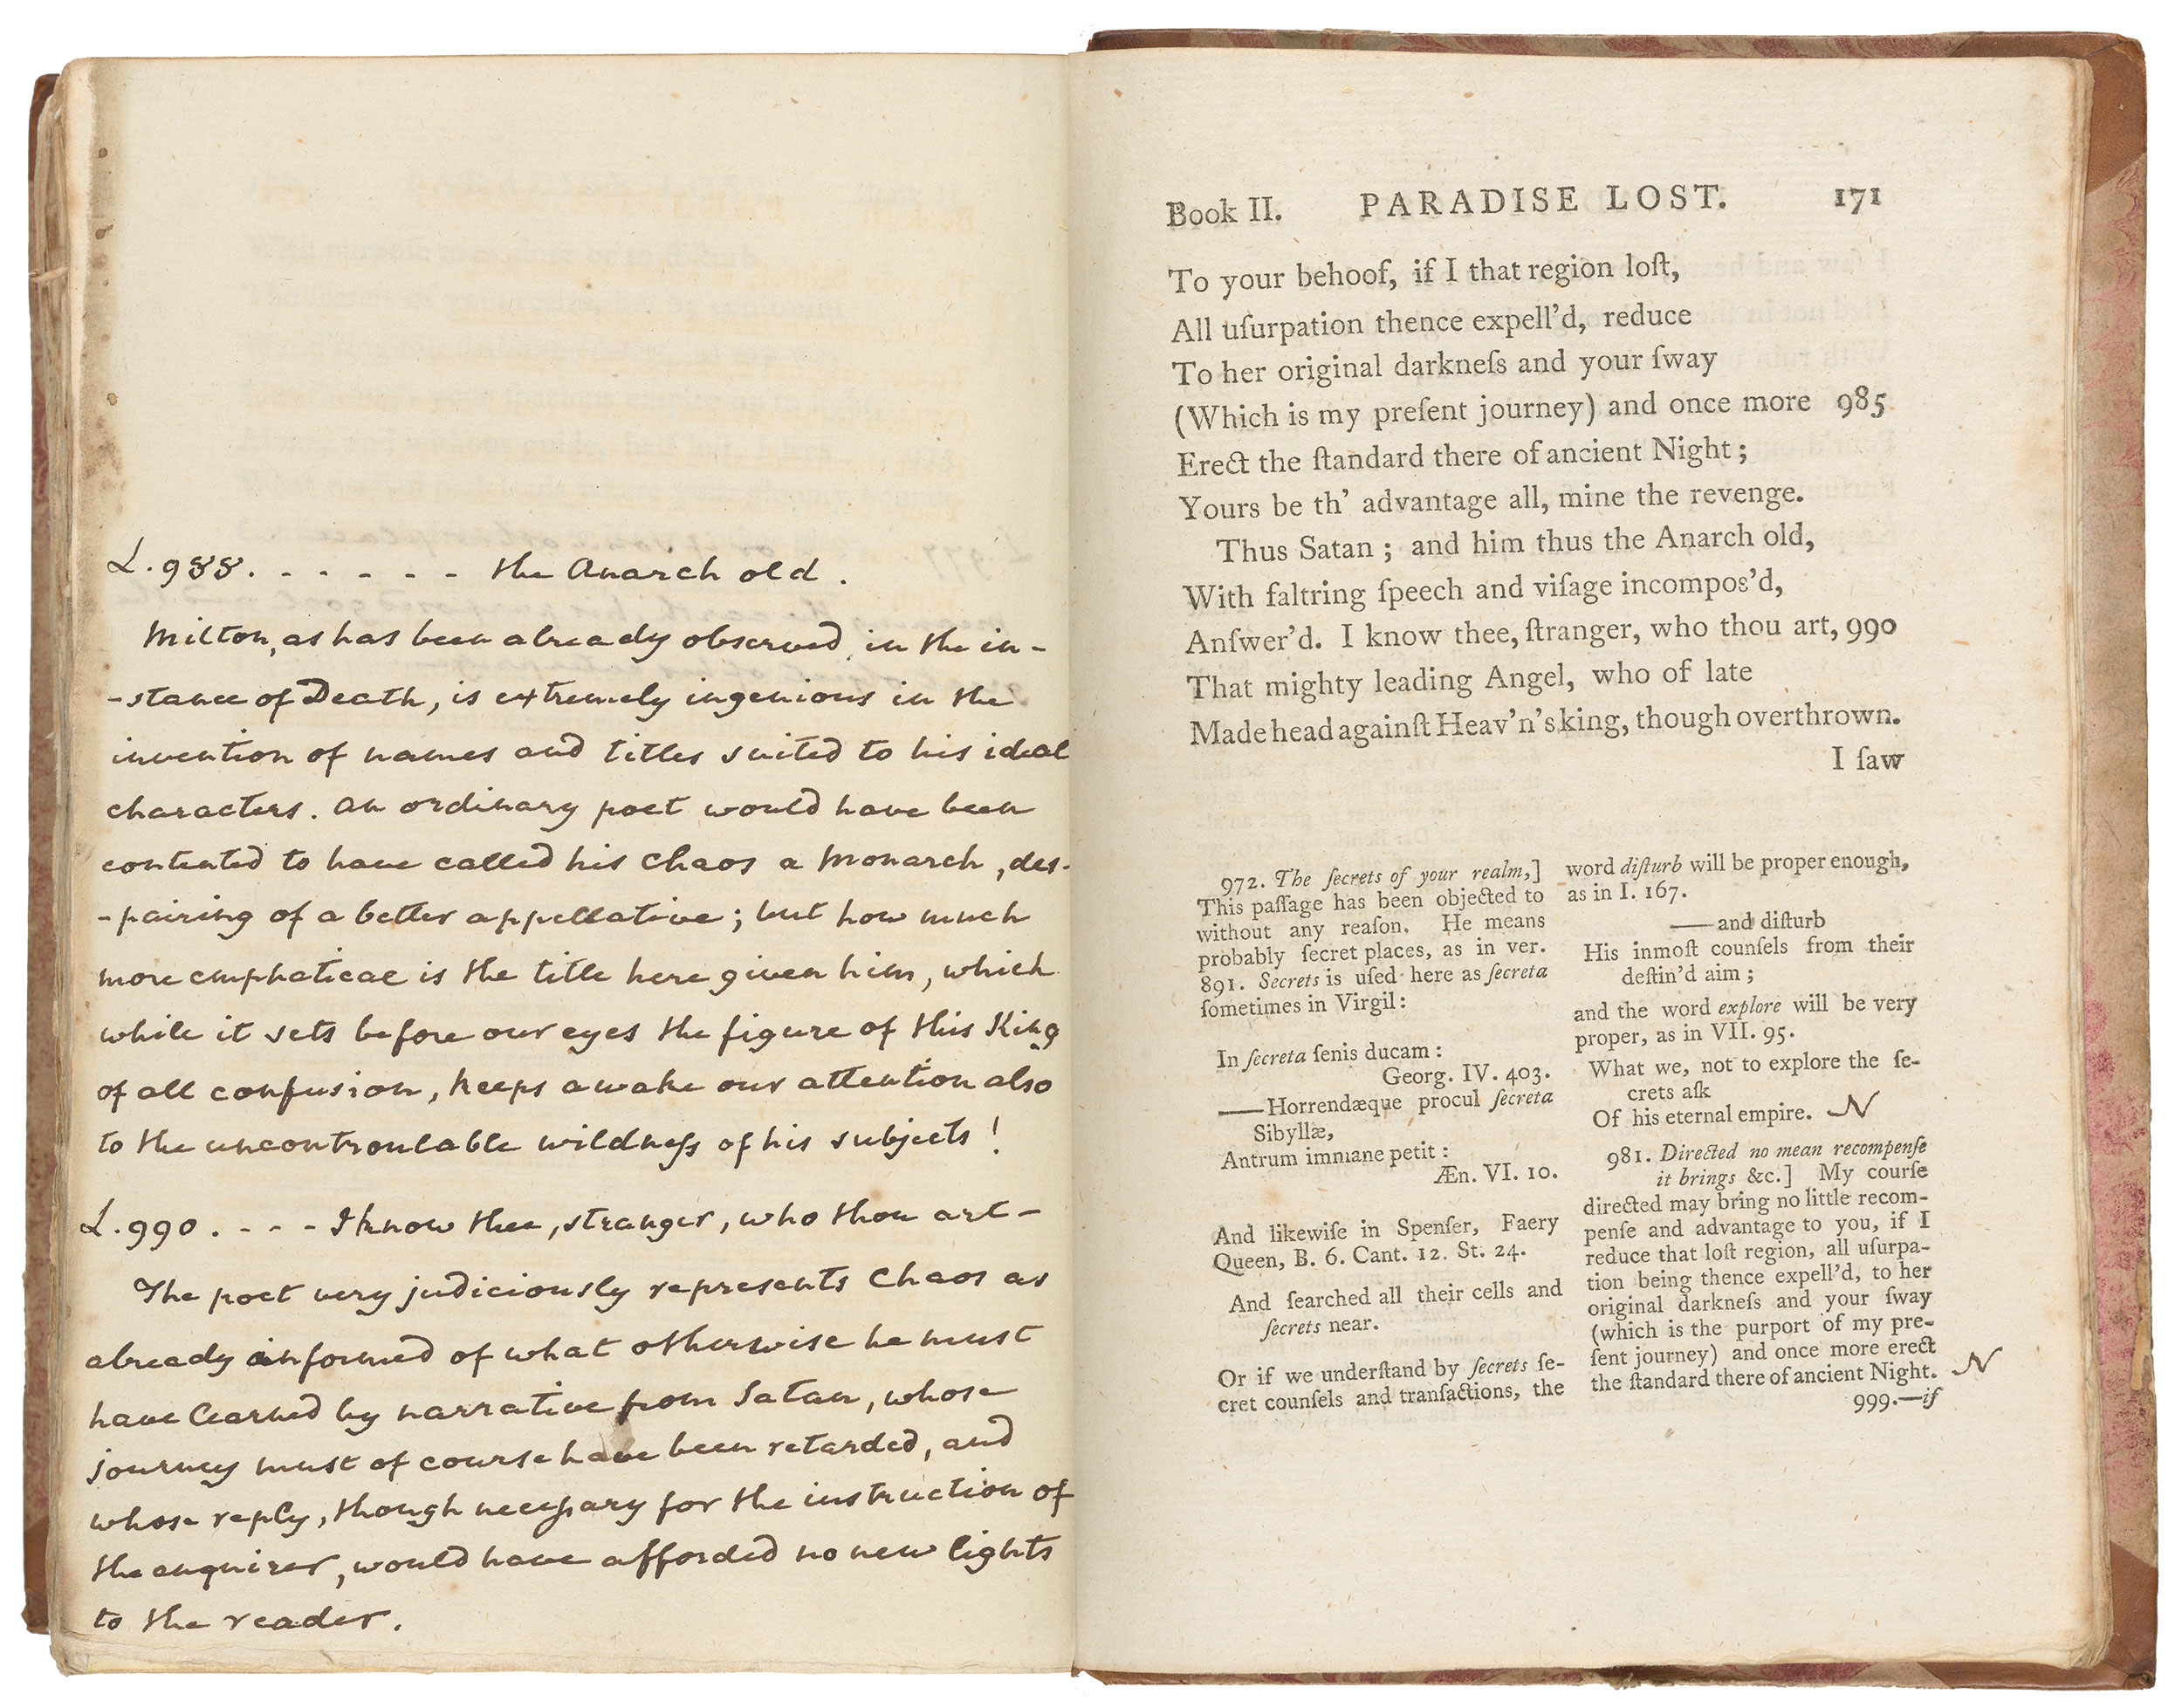 L. 988. - - - - - - the Anarch old.
Milton, as has been already observed, in the in-
-stance of Death, is extremely ingenious in the
invention of names and titles suited to his ideal
characters. An ordinary poet would have been
contented to have called his Chaos a Monarch, des-
-pairing of a better appellative; but how much
more emphatical is the title here given him, which
while it sets before our eyes the figure of this King
of all confusion, keeps awake our attention also
to the uncontroulable wildneſs of his subjects!
L. 990. - - - - I know thee, stranger, who thou art -
The poet very judiciously represents Chaos as
already informed of what otherwise he must
have learned by narrative from Satan, whose
journey must of course have been retarded, and
whose reply, though neceſsary for the instruction of
the enquirer, would have afforded no new lights
to the reader.
Book II. PARADISE LOST. 171
To your behoof, if I that region loſt,
All uſurpation thence expell'd, reduce
To her original darkneſs and your ſway
(Which is my preſent journey) and once more 985
Erect the ſtandard there of ancient Night;
Yours be th' advantage all, mine the revenge.
Thus Satan; and him thus the Anarch old,
With faltring ſpeech and viſage incompos'd,
Anſwer'd. I know thee, ſtranger, who thou art, 990
That mighty leading Angel, who of late
Made head againſt Heav'n's king, though overthrown.
I ſaw
972. The ſecrets of your realm,]
This paſſage has been objected to
without any reaſon. He means
probably ſecret places, as in ver.
891. Secrets is uſed here as ſecreta
ſometimes in Virgil:
In ſecreta ſenis ducam:
Georg. IV. 403.
——Horrendæque procul ſecreta
Sibyllæ,
Antrum immane petit:
Æn. VI. 10.
And likewiſe in Spenſer, Faery
Queen, B. 6. Cant. 12. St. 24.
And ſearched all their cells and
ſecrets near.
Or if we underſtand by ſecrets ſe-
cret counſels and tranſactions, the
word diſturb will be proper enough,
as in I. 167.
——and diſturb
His inmoſt counſels from their
deſtin'd aim;
and the word explore will be very
proper, as in VII. 95.
What we, not to explore the ſe-
crets aſk
Of his eternal empire. N
981. Directed no mean recompenſe
it brings &c.] My courſe
directed may bring no little recom-
penſe and advantage to you, if I
reduce that loſt region, all uſurpa-
tion being thence expell'd, to her
original darkneſs and your ſway
(which is the purport of my pre-
ſent journey) and once more erect
the ſtandard there of ancient Night. N
999.—if